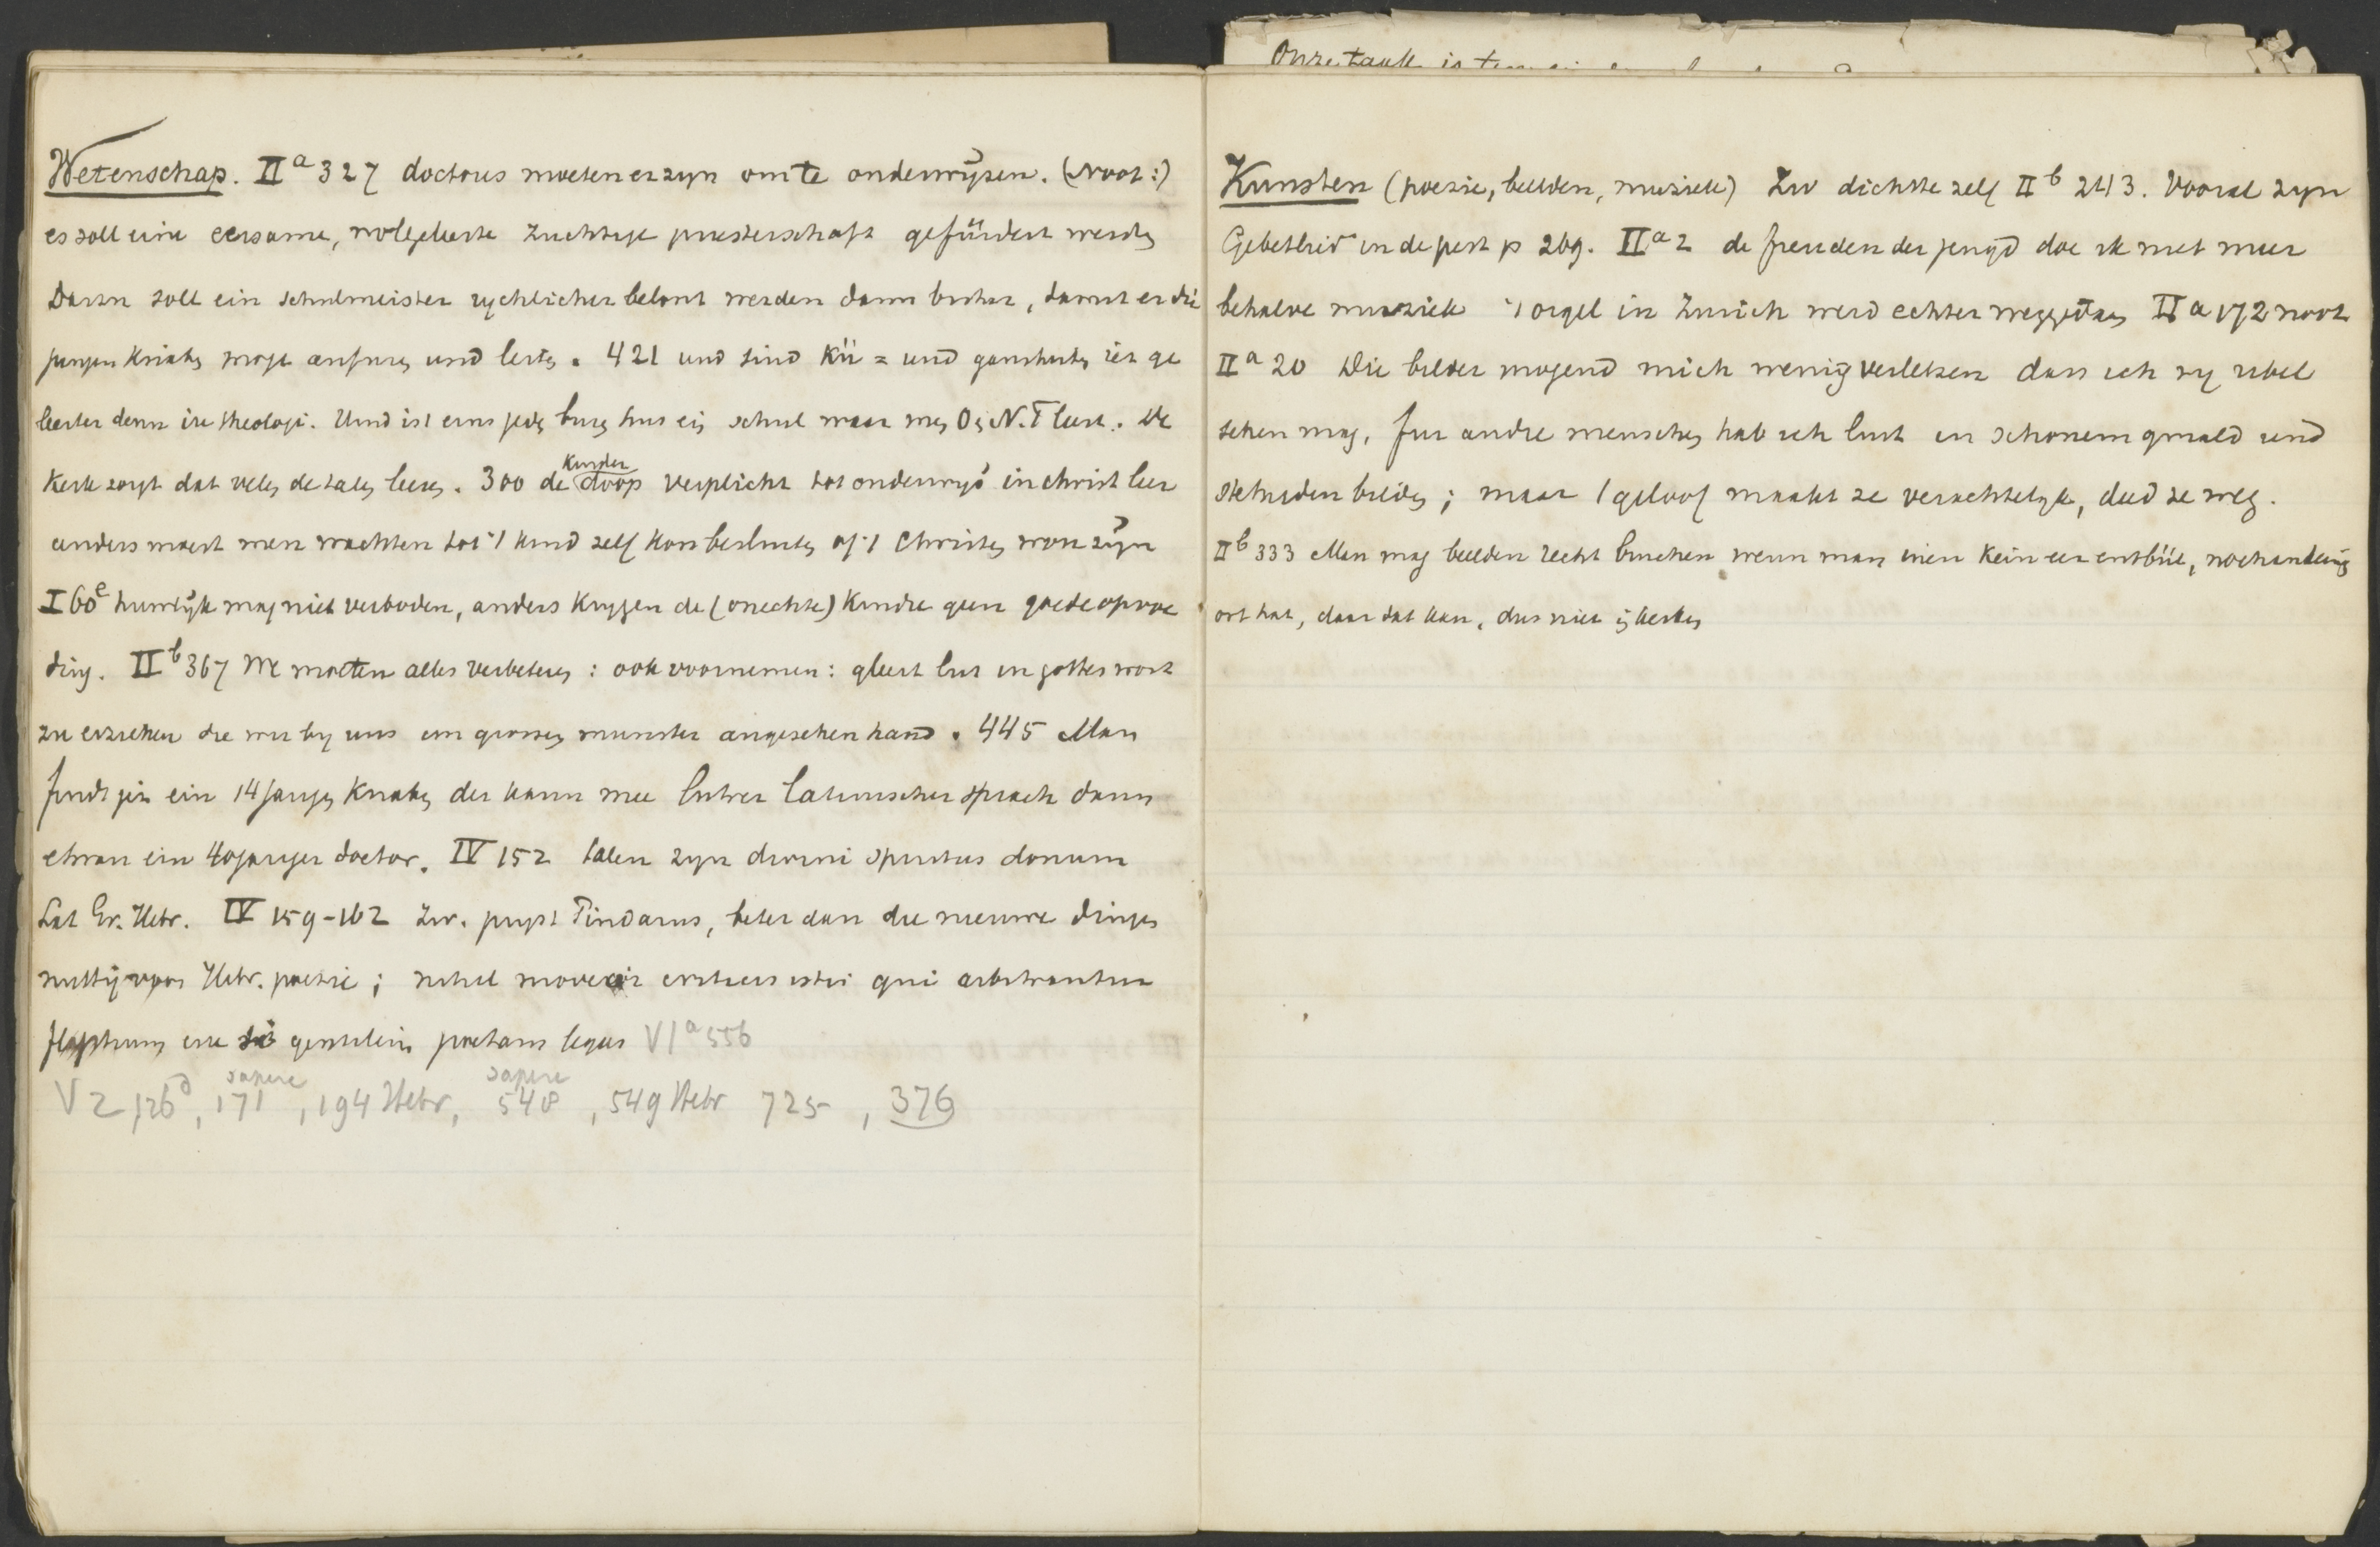 Onze taak is
Wetenschap. IIa 327 doctores moeten er zyn om te onderwyzen. (Noot:)
es soll eine eersame, wolgelerte züchtige priesterschaft gefürdert werden
Darzu soll ein schulmeister rychlicher belont werden dann bisher, damit er die
jungen knaben moge anfuren und leiten. 421 und sind kü = und ganshirten iez ge
leerter denn ire theologi. Und ist eins jeden buren hus ein schul waar men O en N.T leert. De
kerk zorgt dat velen de talen leeren. 300 de kinder doop verplicht tot onderwys in christ leer
anders moest men wachten tot 't kind zelf kon besluiten of 't Christen wou zyn
I 60e huwlyk mag niet verboden, anders krygen de (onechte) kindre geen goede opvoe
ding. IIb 367 We moeten alles verbeteren: ook voornemen: gleert lut in gottes wort
zu erziehen die wir by uns im grossen munster angesehen hand. 445 Man
findt jez ein 14 jarigen knaben der kann mee lutrer latinischer sprach dann
etwan ein 40 jariger doctor. IV 152 talen zyn divini spiritus donum
Lat Gr. Hebr. IV 159-162 Zw. pryst Pindarus, beter dan die nieuwe dingen
nuttig voor Hebr. poezie; nihil moveat istis qui arbitrantur
esse si gentilem poetam legas VIa 556
V 2, 126d, 171 sapere, 194 Hebr, 548 sapere, 549 Hebr 725, 376
Kunsten (poezie, beelden, muziek) Zw dichtte zelf IIb 243. Vooral zyn
Gebetlied in de pest p 269. IIa 2 de freuden der jeugd doe ik niet meer
behalve muziek 't orgel in Zurich werd echter weggedaan IIa 172 noot
IIa 20 Die bilder mogend mich wenig verletzen dass ich sy ubel
sehen mag. fur andre menschen hab ich lust in schonem gmald und
stehnden bilden; maar 't geloof maakt ze verachtelyk, deed ze weg.
IIb 333 Man mag beelden recht bruchen wenn man inen kein eer entbüt, noch an dein
ort hat, daar dat kan, dus niet in kerken